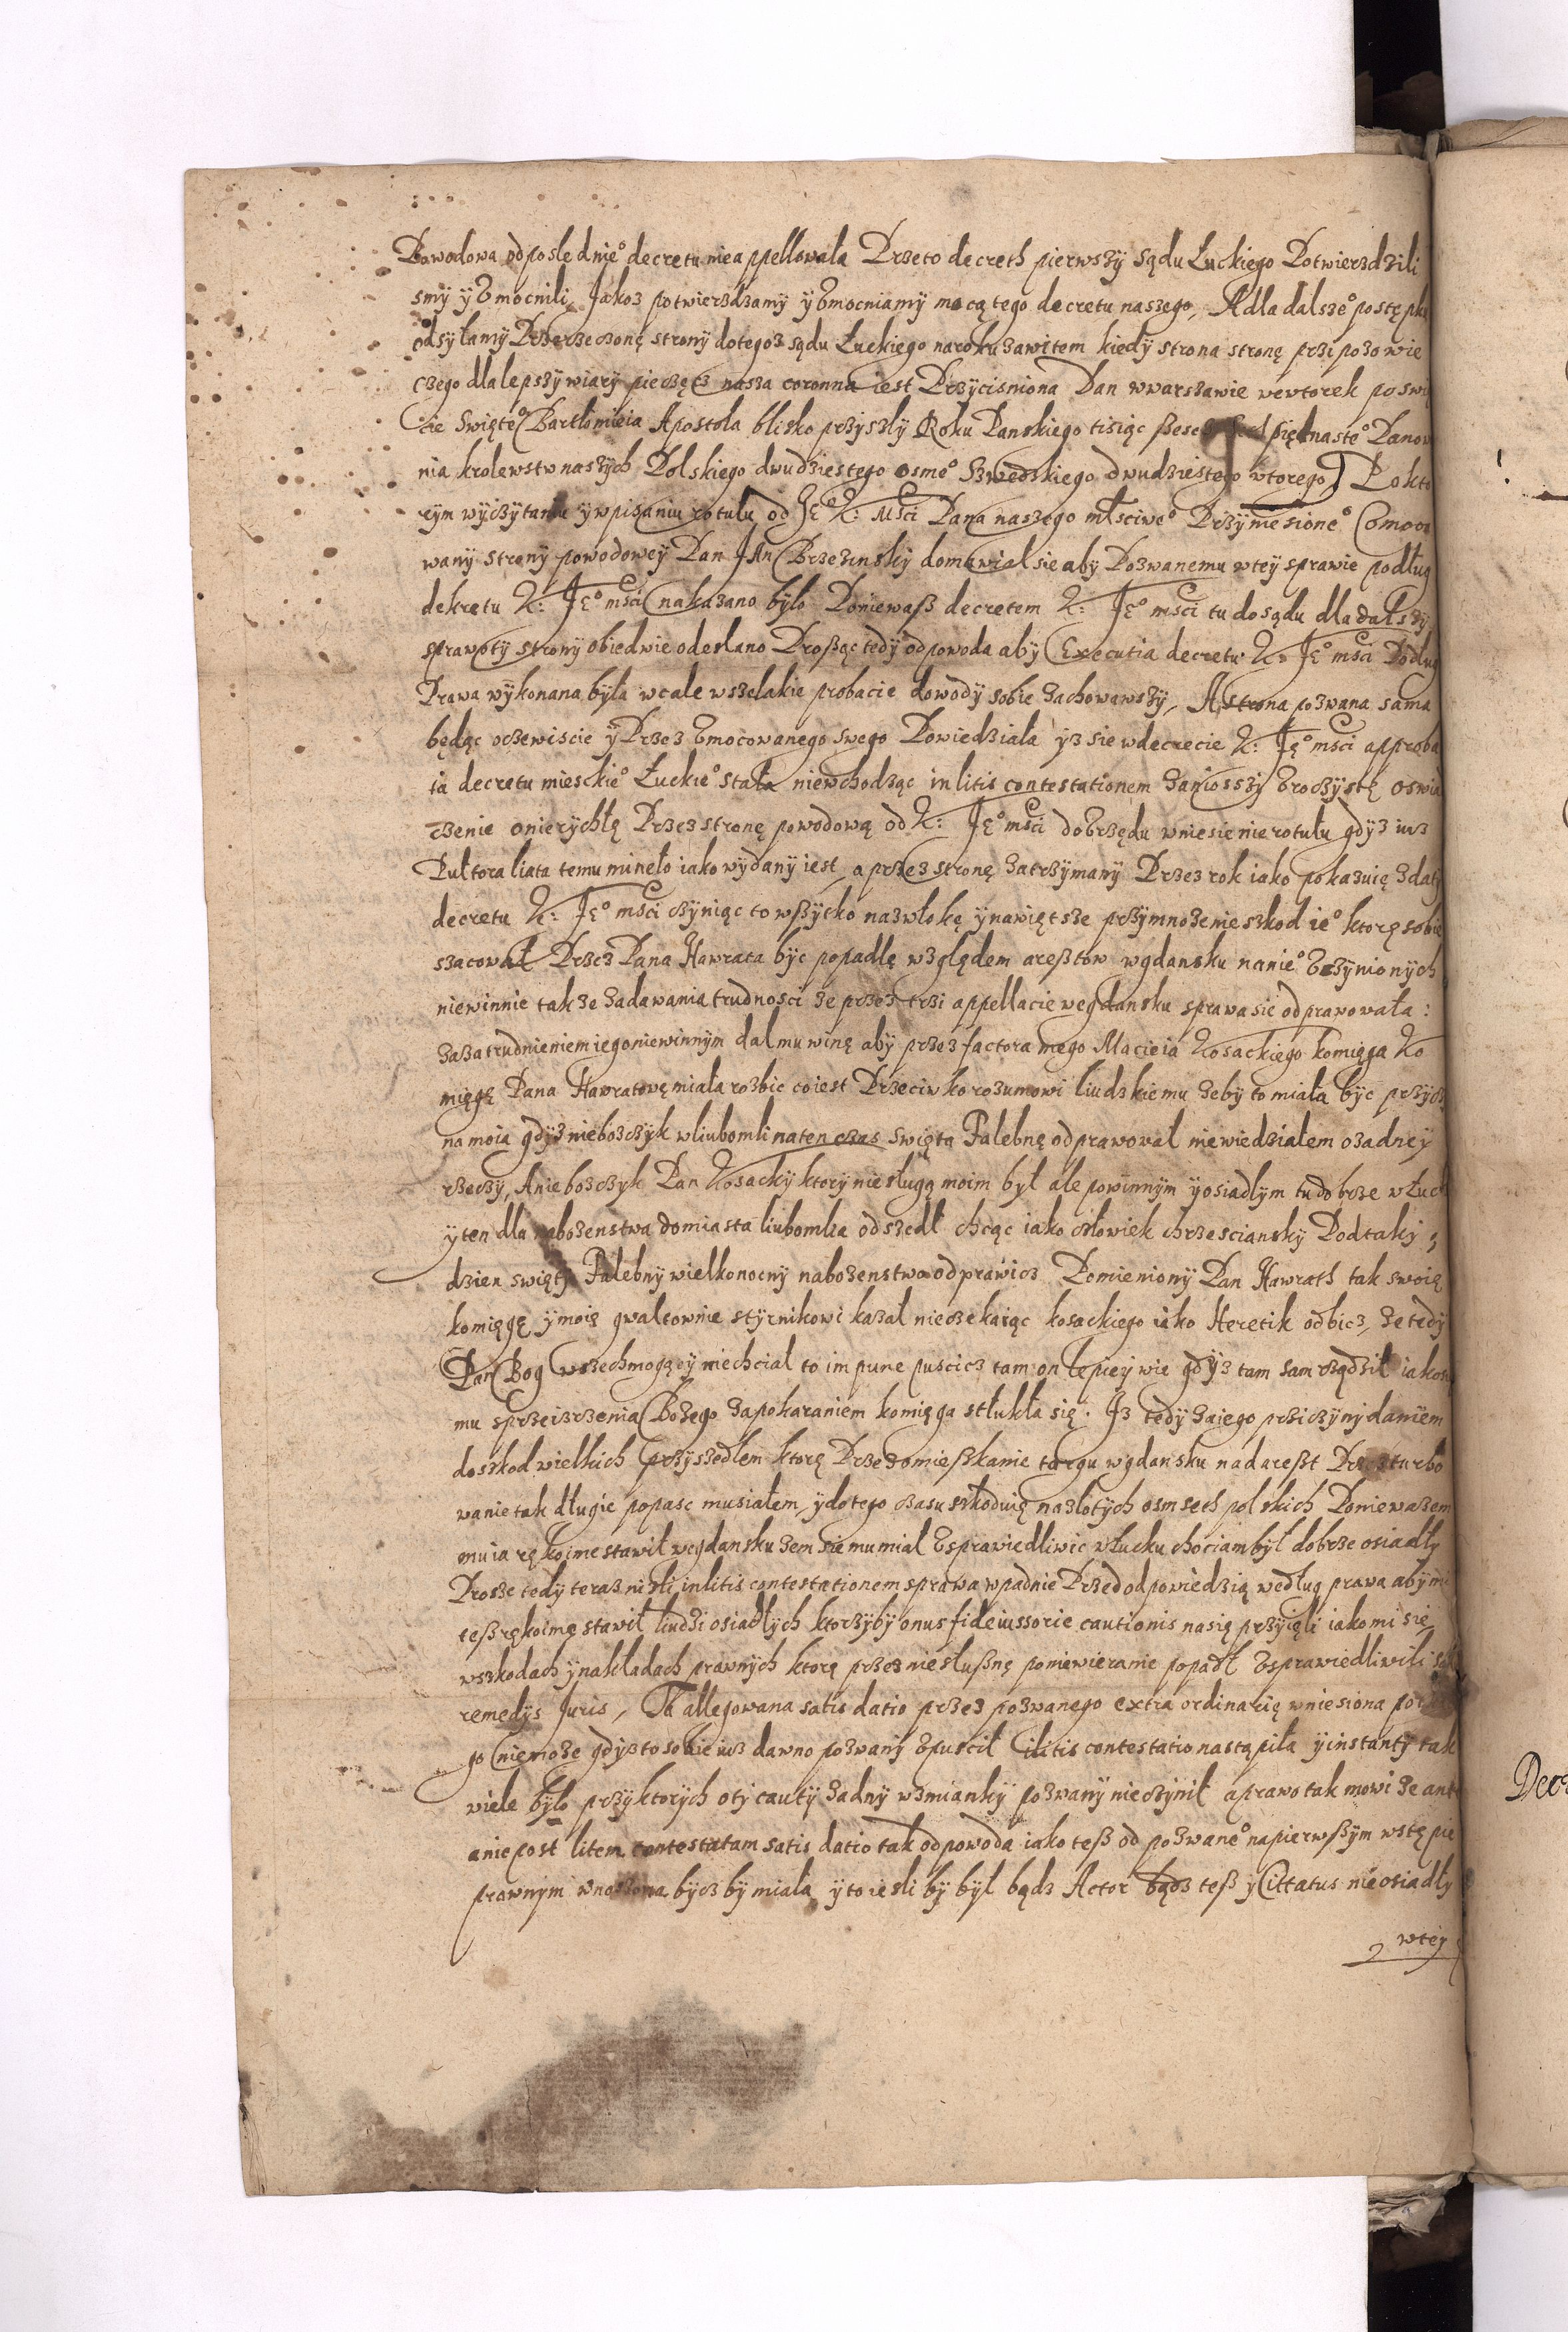 Powodowa odposlednie° decretu nie appellowała Przeto decreth pierwszy sądu Łuckiego Potwierdzili
smy y Zmocnili, Jakoz potwierdzamy y Zmocniamy mocą tego decretu naszego, A dla dalsze° postępku
odsyłamy Przerzeczonę strony do tegoz sądu Łuckiego na roku zawitem kiedy strona stronę przypozowie
czego dla lepszy wiary pieczętz nasza coronna iest Przycisniona Dan w Warszawie we wtorek po swię
cie Swięte° Bartłomieia Apostoła blisko przyszły Roku Panskiego tisiąc szesc piętnaste° Panowa
nia krolewstw naszych Polskiego dwudziestego osme° Szwedskiego dwudziestego wtorego) Po kto
rym wyczytaniu y wpisaniu rotułu od Je° K: Msci Pana naszego młsciwe° Przyniesione° Omoco
wany strony powodowey Pan Jan Brzezinsky domawiał sie aby Pozwanemu w tey sprawie podług
dekretu K: Je° msci nakazano było Poniewaß decretem K: Je° msci tu do sądu dla dalszy
sprawy ty strony obiedwie odesłano Proßąc tedy od powoda aby Executia decretu K: Je° msci Podług
Prawa wykonana była w cale wszelakie probacie dowody sobie zachowawszy, A strona pozwana sama
będąc oczewiscie y Przez Zmocowanego swego Powiedziała yz sie w decrecie K: Je° msci approba
ia decretu miesckie° Łuckie° stała nie wchodząc in litis contestationem zaniosszy Zroczystę oswia
czenie o nierychłę Przez stronę powodową od K: Je° msci do Vrzędu wniesienie rotułu gdyz iuz
Pułtora liata temu mineło iako wydany iest, a przez stronę zatrzymany Przez rok iako pokazuię z daty
decretu K: Je° msci czyniąc to wßytko na zwłokę y nawiętsze przymnozenie szkod ie° ktorę sobie
szacował Przez Pana Hawrata byc popadłę względem areßtow w gdansku na nie° Vczynionych
niewinnie takze zadawania trudnosci ze przez trzi appellacie we gdansku sprawa sie odprawowała:
za zatrudnieniem iego niewinnym dał mu winę aby przez factora mego Macieia Kosackiego komięga Ko
mięgę Pana Hawratowę miała rozbic co iest Przeciwko rozumowi liudzkiemu zeby to miała byc przycz
na moia gdyz nieboszczyk w Liubomli na ten czas swięta Falebnę odprawował nie wiedziałem o zadney
rzeczy, A nieboszczyk Pan Kosacky ktory nie sługą moim był ale powinnym y osiadłym tu dobrze w Łucku
y ten dla nabozenstwa do miasta Liubomla odszedł chcąc iako człowiek chrzescianský Pod taky
dzien swięty Falebny wielkonocny nabozenstwo odprawicz Pomieniony Pan Hawrath tak swoię
komięgę y moię gwałtownie styrnikowi kazał nie czekaiąc kosackiego iako Heretik odbicz, Ze tedy
Pan Bog wszechmogący niechciał to impune puscicz tam on lepiey wie gdyz tam sam rządził iakosz
mu z przeizrzenia Bozego za pokaraniem komięga stłukła się. Iz tedy za iego przyczyny daniem
do szkod wielkich przyszedłem ktorę Przez omieszkanie targu w gdansku nad areßt Przez turbo
wanie tak długie popasc musiałem, y do tego czasu szkoduię na złotych osm seth polskich Poniewazem
mu ia rękoime stawił we gdansku zem sie mu miał Vsprawiedliwic w Łucku chociam był dobrze osiadły
Prosze tedy teraz nizli in litis contestationem sprawa wpadnie Przed odpowiedzią według prawa aby mi
teß rękoimę stawił liudzi osiadłych ktorzyby onus fideiussorie cautionis na się przyięli iako mi się
w szkodach y nakładach prawnych ktorę przez niesłußnę poniewieranie popadł Vsprawiedliwili
remedys Juris, Ta allegowana satis datio przez pozwanego extra ordinarię wniesiona
go niemoze gdyß to sobie iuz dawno pozwany Vpuscił i litis contestatio nastąpiła y instanty tak
wiele było przy ktorych o ty cauty zadny wzmianky pozwany nie czynił a prawo tak mowi ze ante
a nie post litem contestatam satis datio tak od powoda iako teß od pozwane° na pierwßym wstępie
prawnym wnoszona bycz by miała y to iesli by był bądz Actor bądz teß y Cittatus nie osiadły
w tey